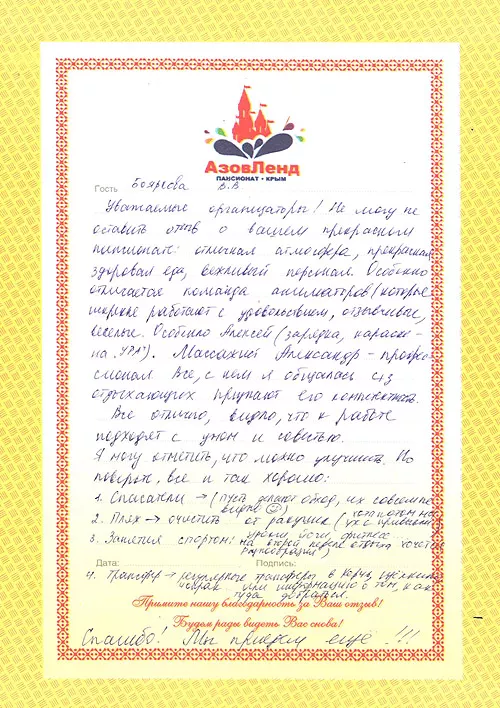 АзовЛенд
ПАНСИОНАТ • КРЫМ
Гость Бояркова В.В
Уважаемые организаторы! Не могу не
оставить отзыв о вашем прекрасном
пансионате: отличная атмосфера, прекрасная
здоровая еда, вежливый персонал. Особенно
отличается команда аниматоров (которые
искренне работают с удовольствием, отзывчивые,
веселые. Особенно Алексей (зарядка,
на "УРА"). Массажист Александр - профес-
сионал. Все, с кем я общалась из
отдыхающих признают его компетентность.
Все отлично, видно, что к работе
подходят с умом и совестью.
Я могу отметить, что можно улучшить. Но
поверьте, все и так хорошо:
1. Спасатели → (пусть делают обход, их совсем не
видно ☺)
2. Пляж → очистить от ракушек
3. Занятия спортом: уроки йоги, фитнес
на второй неделе отдыха хочется
разнообразия)
Дата: Подпись:
4. Трансфер → регулярные трансферы в Керчь,
или информацию о том, как
туда добраться.
Примите нашу благодарность за Ваш отзыв!
Будем рады видеть Вас снова!
Спасибо! Мы приедем ещё !!!